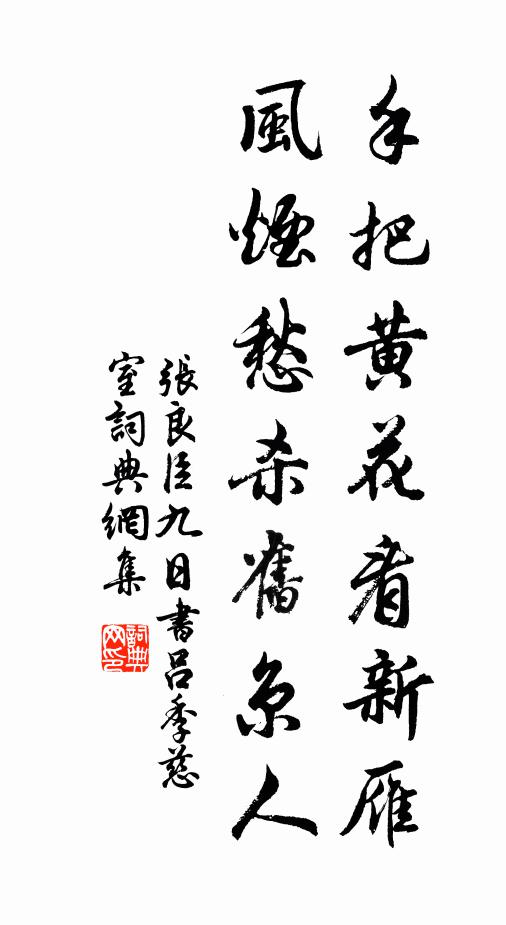 手把黄花看新雁
風煙愁杀舊京人
張良臣九日書呂季慈
室詞典網集
詞典网印